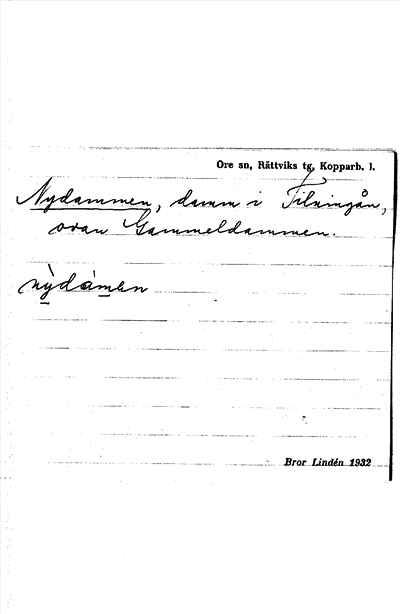 Ore sn, Rättviks tg, Kopparb. l.
Nydammen, damm i Tilningån,
ovan Gammeldammen.
nỳdámen
Bror Lindén 1932